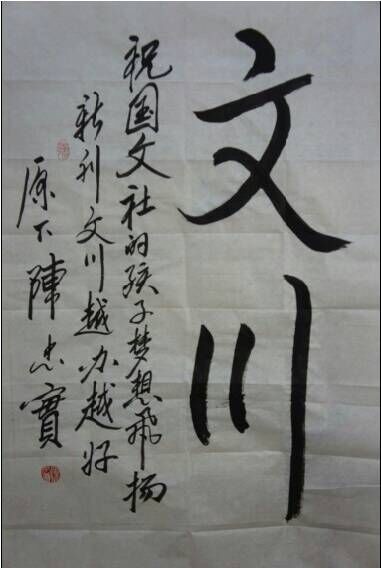 文川
祝国文社的孩子梦想飛扬
新刊文川越办越好
原下陳忠實